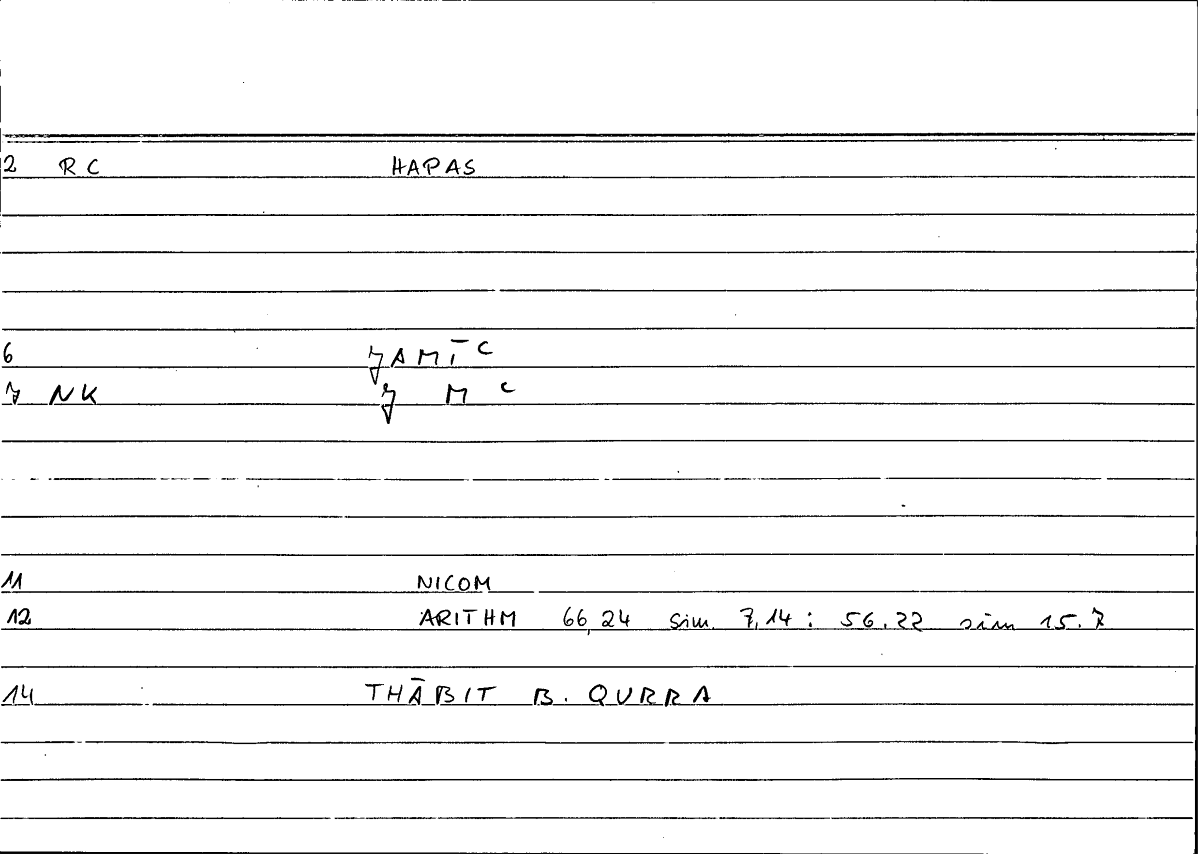 2 RC HAPAS
6 JAMĪ c
7 NK J M c
11 NICOM
12 ARITHM 66,24 sim. 7,14 : 56.22 sim 15.7
14 THĀBIT B. QURRA